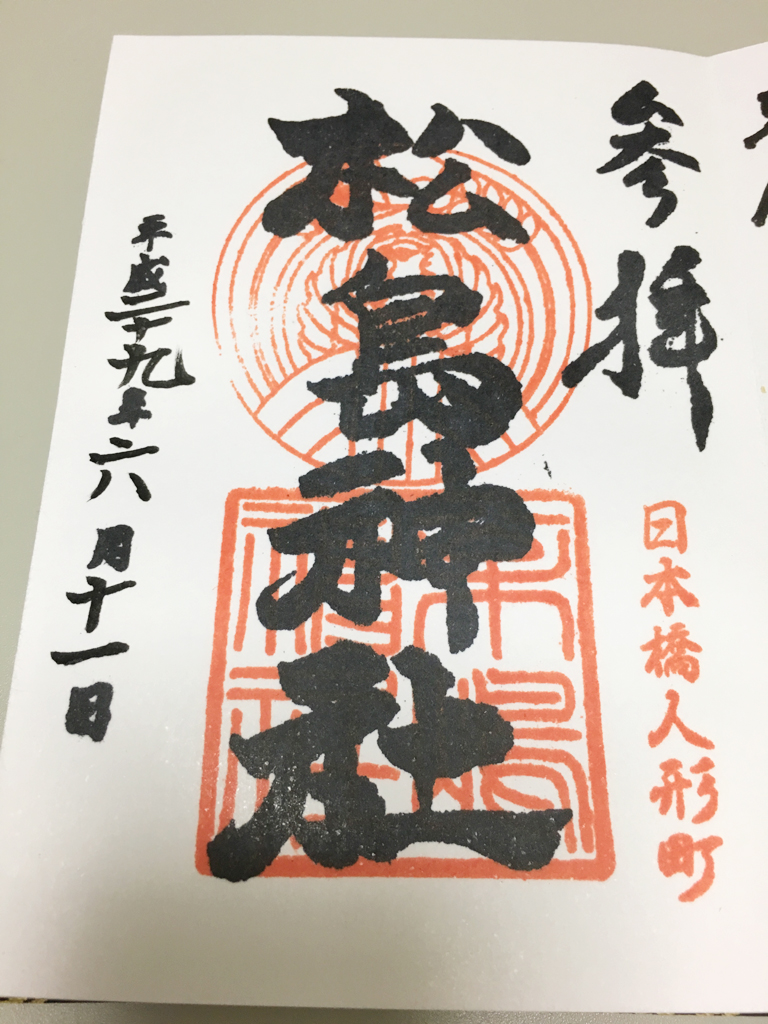 参拝
日本橋人形町
松島神社
平成二十九年六月十一日